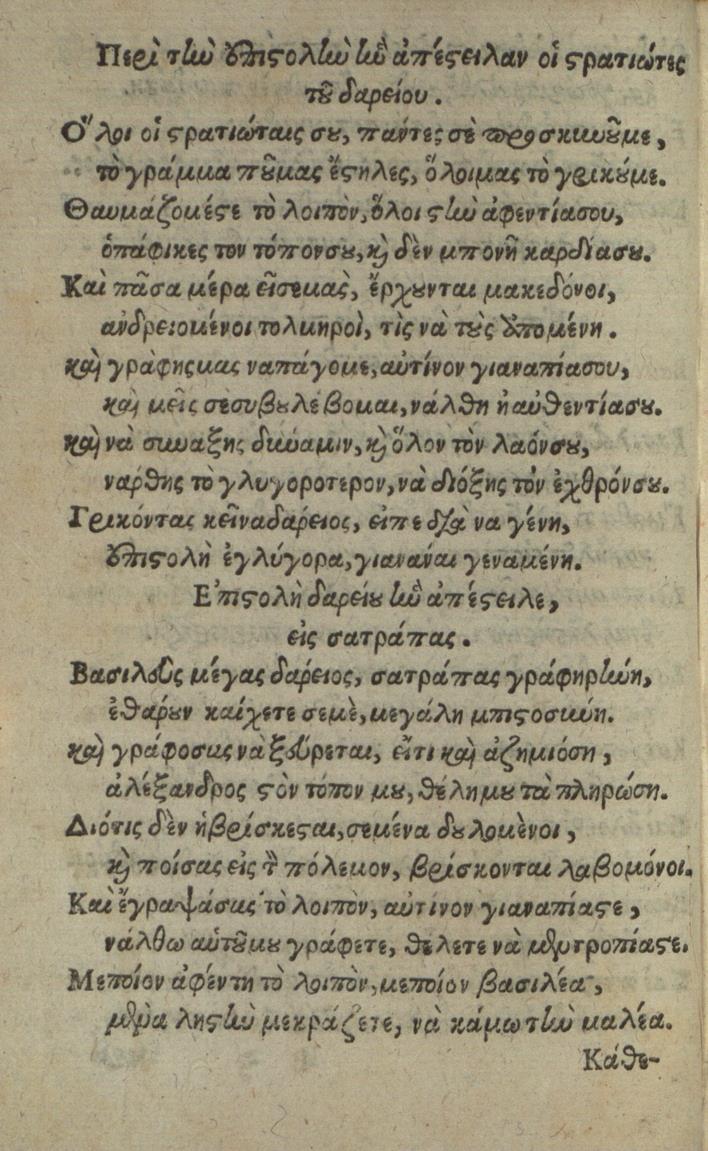 Περὶ τὴν ἐπιστολὴν ἣν ἀπέστειλαν οἱ στρατιώτες
τοῦ δαρείου.
Ὅλοι οἱ στρατιώταις σου, παντες σὲ προσκινοῦμε,
τὸ γράμμα ποῦμας ἔστηλες, ὅλοιμας τὸ γρικούμε.
Θαυμάζομέστε τὸ λοιπὸν, ὅλοι στὴν ἀφεντίασου,
ὁπάφικες τον τόπονσου, καὶ δὲν μπονῆ καρδίασου.
Καὶ πᾶσα μέρα εἲσεμας, ἔρχουνται μακεδόνοι,
ανδρειομένοι τολμηροὶ, τὶς νὰ τοὺς ὑπομένη.
καὶ γράφηςμας ναπάγομε, αὐτίνον γιαναπίασου,
καὶ μεῖς σὲσυβουλέβομαι, νάλθη ἡ αὐθεντίασου.
καὶ νὰ συναξης δύναμιν, καὶ ὅλον τὸν λαόνσου,
ναρθης τὸ γλυγοροτερον, νὰ διόξης τὸν ἐχθρόνσου.
Γρικόντας κεῖναδαρειος, εἰπε διὰ να γένη,
ἐπιστολὴ ἐγλύγορα, γιανανάι γεναμένη.
Ἐπιστολὴ δαρείου ἣν ἀπέστειλε,
εἰς σατράπας.
Βασιλεὺς μέγας δαρειος, σατράπας γράφηρτήνη,
ἐθαρουν καίχετε σεμὲ, μεγάλη μπιστοσύνη.
καὶ γράφοσας νὰ ξεύρεται, εἴτι καὶ ἀζημιόση,
ἀλέξανδρος στὸν τόπον μου, θέλημου τὰ πληρώση.
Διότις δὲν ἡβρίσκεσται, σεμένα δουλομένοι,
καὶ ποίσας εἰς τὸν πόλεμον, βρίσκονται λαβομόνοι.
Καὶ ἔγραψάσας τὸ λοιπὸν, αὐτίνον γιαναπίαστε,
νάλθω αὐτοῦμου γράφετε, θέλετε νὰ μεντροπίαστε.
Μεποίον ἀφέντη τὸ λοιπὸν, μεποίον βασιλέα,
μένα ληστὴν μεκράζετε, νὰ κάμω τὴν μαλέα.
Κάθε-